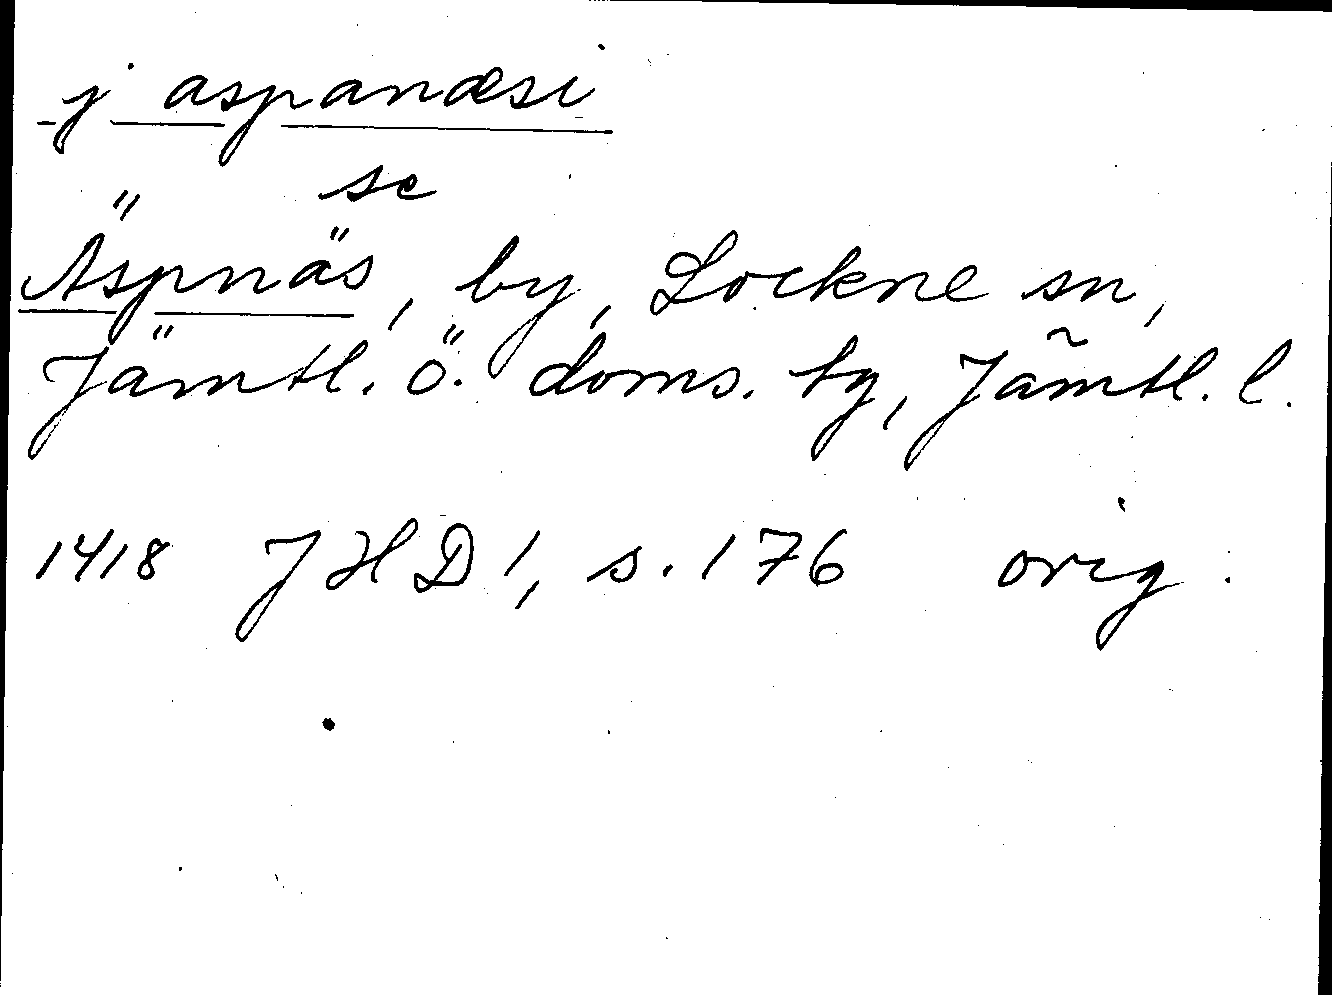 j aspanæsi
se
Äspnäs, by, Lockne sn,
Jämtl. ö. doms. tg, Jämtl. l.
1418 JHD 1, s. 176 orig.